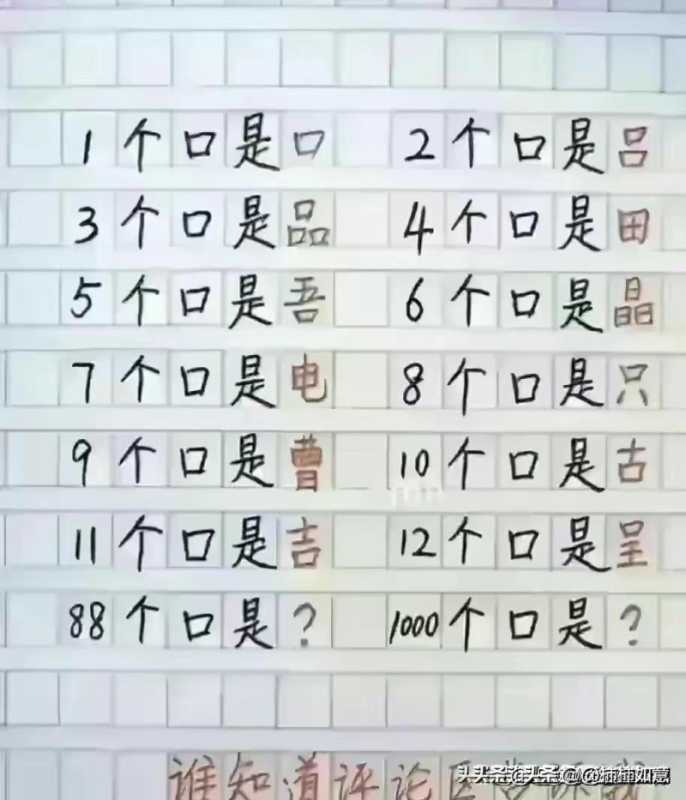 1个口是口 2个口是吕
3个口是品 4个口是田
5个口是吾 6个口是晶
7个口是电 8个口是只
9个口是曹 10个口是古
11个口是吉 12个口是呈
88个口是? 1000个口是?
谁知道评论区
头条 @柿柿如意